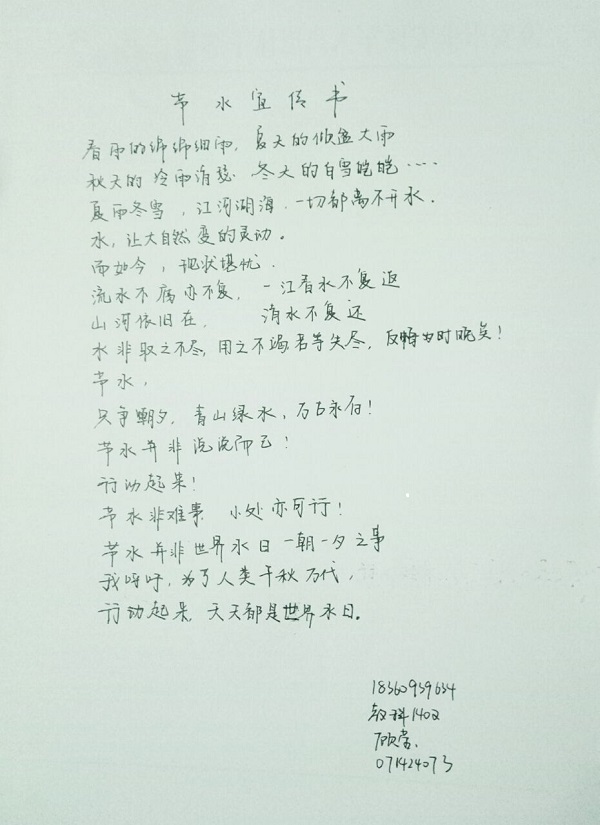 节水宣传书
春雨的绵绵细雨，夏天的倾盆大雨
秋天的冷雨清瑟 冬天的白雪皑皑……
夏雨冬雪，江河湖海，一切都离不开水．
水，让大自然变的灵动。
而如今，现状堪忧．
流水不腐亦不复，一江春水不复返
山河依旧在， 清水不复还
水非取之不尽，用之不竭，若等失尽，反悔为时晚矣！
节水，
只争朝夕，青山绿水，万古永存！
节水并非说说而已！
行动起来！
节水非难事 小处亦可行！
节水并非世界水日一朝一夕之事
我呼吁，为了人类千秋万代，
行动起来，天天都是世界水日。
18360939634
教科1402
顾常．
071424073